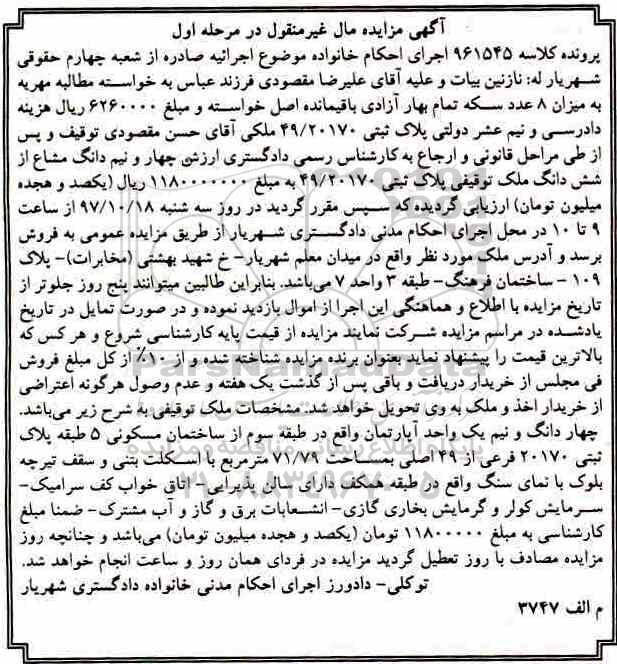 آگهی مزایده مال غیرمنقول در مرحله اول
پرونده کلاسه ۹۶۱۵۴۵ اجرای احکام خانواده موضوع اجرائیه صادره از شعبه چهارم حقوقی
شهریار له: نازنین بیات و علیه آقای علیرضا مقصودی فرزند عباس به خواسته مطالبه مهریه
به میزان ۸ عدد سکه تمام بهار آزادی باقیمانده اصل خواسته و مبلغ ۶۲۶۰۰۰۰ ریال هزینه
دادرسی و نیم عشر دولتی پلاک ثبتی ۴۹/۲۰۱۷۰ ملکی آقای حسن مقصودی توقیف و پس
از طی مراحل قانونی و ارجاع به کارشناس رسمی دادگستری ارزش چهار و نیم دانگ مشاع از
شش دانگ ملک توقیفی پلاک ثبتی ۴۹/۲۰۱۷۰ به مبلغ ۱۱۸۰۰۰۰۰۰۰ ریال (یکصد و هجده
میلیون تومان) ارزیابی گردیده که سپس مقرر گردید در روز سه شنبه ۹۷/۱۰/۱۸ از ساعت
۹ تا ۱۰ در محل اجرای احکام مدنی دادگستری شهریار از طریق مزایده عمومی به فروش
برسد و آدرس ملک مورد نظر واقع در میدان معلم شهریار- خ شهید بهشتی (مخابرات)- پلاک
۱۰۹ - ساختمان فرهنگ- طبقه ۳ واحد ۷ می‌باشد. بنابراین طالبین میتوانند پنج روز جلوتر از
تاریخ مزایده با اطلاع و هماهنگی این اجرا از اموال بازدید نموده و در صورت تمایل در تاریخ
یادشده در مراسم مزایده شرکت نمایند مزایده از قیمت پایه کارشناسی شروع و هر کس که
بالاترین قیمت را پیشنهاد نماید بعنوان برنده مزایده شناخته شده و از ۱۰٪ از کل مبلغ فروش
فی مجلس از خریدار دریافت و باقی پس از گذشت یک هفته و عدم وصول هرگونه اعتراضی
از خریدار اخذ و ملک به وی تحویل خواهد شد. مشخصات ملک توقیفی به شرح زیر می‌باشد.
چهار دانگ و نیم یک واحد آپارتمان واقع در طبقه سوم از ساختمان مسکونی ۵ طبقه پلاک
ثبتی ۲۰۱۷۰ فرعی از ۴۹ اصلی بمساحت ۷۱/۷۹ مترمربع با اسکلت بتنی و سقف تیرچه
بلوک با نمای سنگ واقع در طبقه همکف دارای سالن پذیرایی- اتاق خواب کف سرامیک-
سرمایش کولر و گرمایش بخاری گازی- انشعابات برق و گاز و آب مشترک- ضمنا مبلغ
کارشناسی به مبلغ ۱۱۸۰۰۰۰۰ تومان (یکصد و هجده میلیون تومان) می‌باشد و چنانچه روز
مزایده مصادف با روز تعطیل گردید مزایده در فردای همان روز و ساعت انجام خواهد شد.
توکلی- دادورز اجرای احکام مدنی خانواده دادگستری شهریار
م الف ۳۷۴۷
ParsNamadData